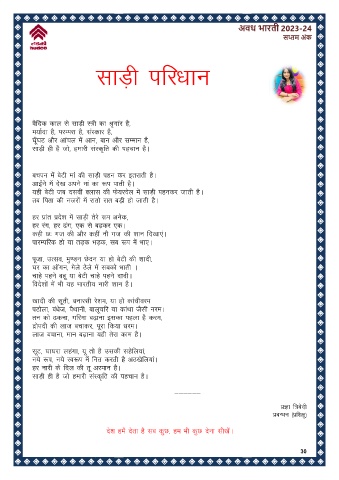 अवध भारती 2023-24
सप्तम अंक
hudco
साड़ी परिधान
वैदिक काल से साड़ी स्त्री का श्रृंगार है,
मर्यादा है, परम्परा है, संस्कार है,
घूँघट और आंचल में आन, बान और सम्मान है,
साड़ी ही है जो, हमारी संस्कृति की पहचान है।
बचपन में बेटी मां की साड़ी पहन कर इतराती है।
आईने में देख अपने मां का रूप पाती है।
यही बेटी जब दसवीं क्लास की फेयरवेल में साड़ी पहनकर जाती है।
तब पिता की नजरों में रातों रात बड़ी हो जाती है।
हर प्रांत प्रदेश में साड़ी तेरे रूप अनेक,
हर रंग, हर ढंग, एक से बढ़कर एक।
कहीं छः गज की और कहीं नौ गज की शान दिखाएं।
पारम्परिक हो या तड़क भड़क, सब रूप में भाए।
पूजा, उत्सव, मुण्डन छेदन या हो बेटी की शादी,
घर का आँगन, मेले ठेले में सबको भाती ।
चाहे पहने बहू या बेटी चाहे पहने दादी।
विदेशों में भी यह भारतीय नारी शान है।
खादी की सूती, बनारसी रेशम, या हो कांजीवरम
पटोला, बंधेज, पैठानी, बालुचरि या कांथा जैसी नरम।
तन को ढकना, गरिमा बढ़ाना इसका पहला है करम,
द्रोपदी की लाज बचाकर, पूरा किया धरम।
लाज बचाना, मान बढ़ाना यही तेरा काम है।
सूट, घाघरा लहंगा, यू तो है उसकी सहेलियां,
नये रूप, नये स्वरूप में नित करती है अठखेलियां।
हर नारी के दिल की तू अरमान है।
साड़ी ही है जो हमारी संस्कृति की पहचान है।
प्रज्ञा त्रिवेदी
देश हमें देता है सब कुछ, हम भी कुछ देना सीखें।
30